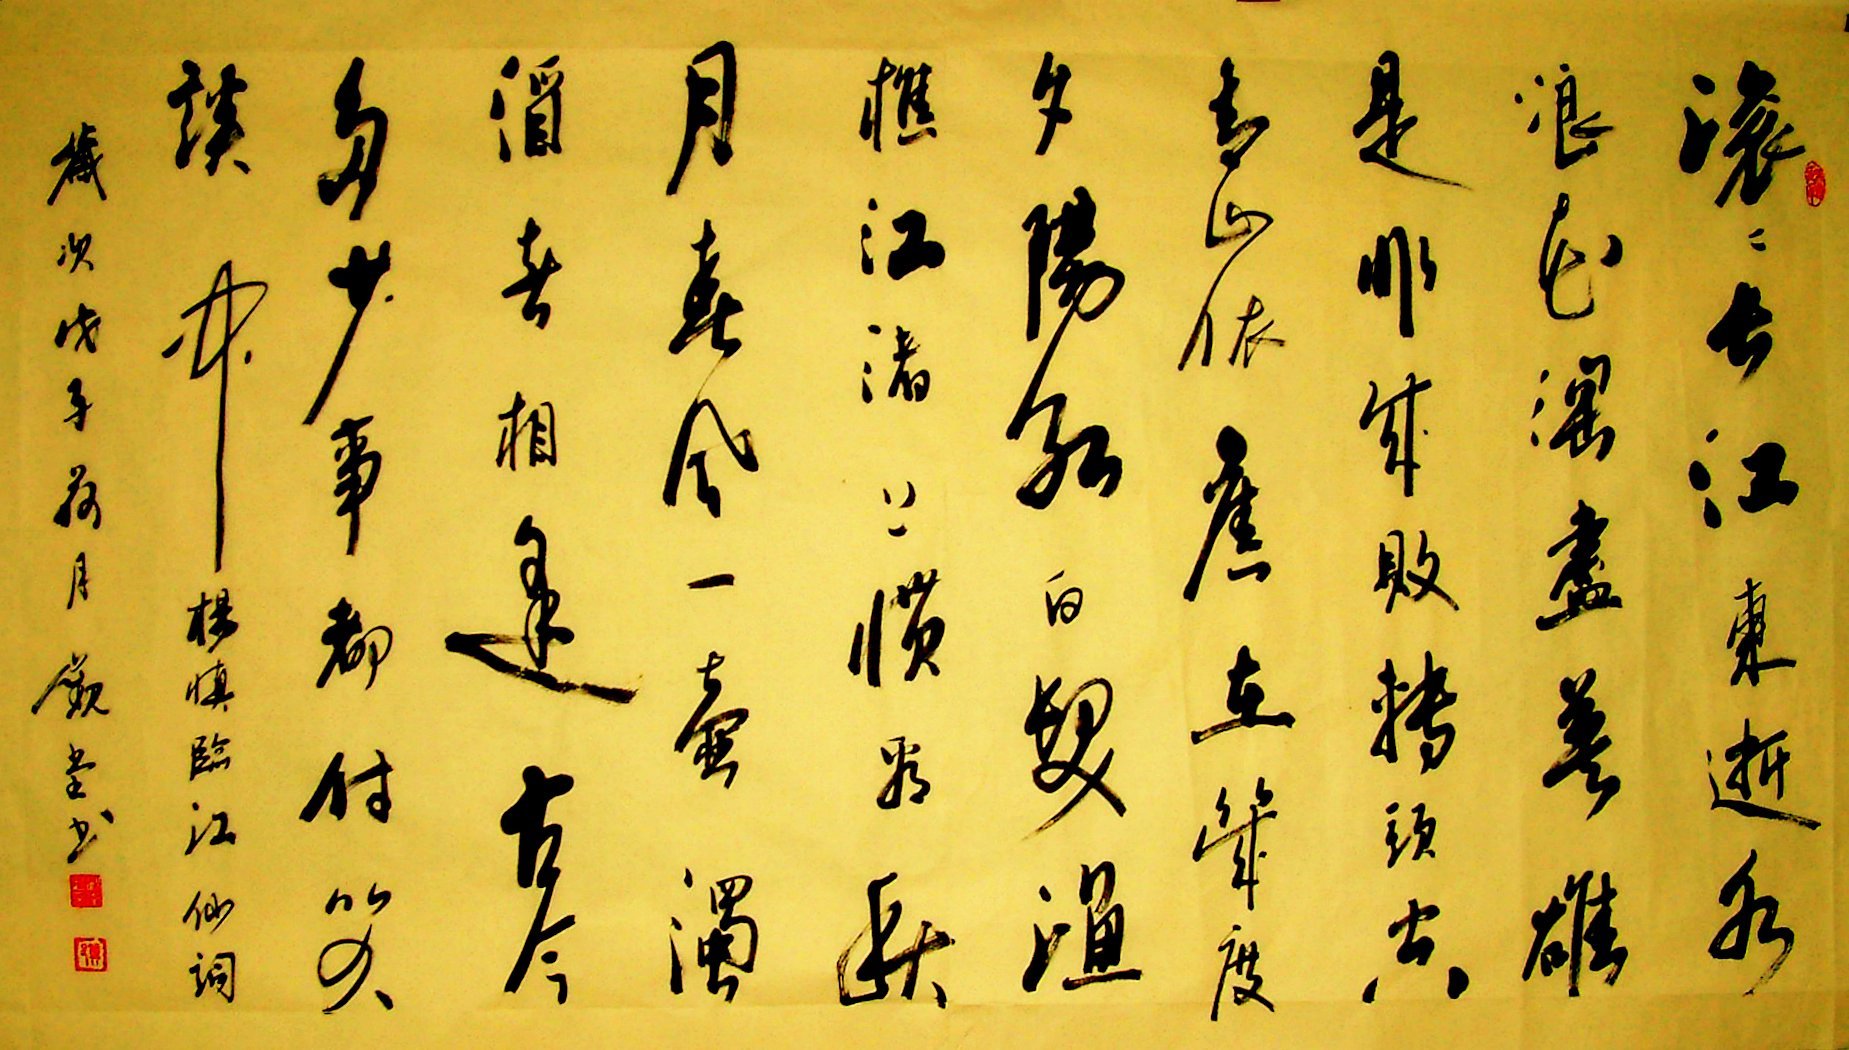 滚〻长江東逝水
浪花滔盡英雄
是非成败轉頭空
青山依舊在幾度
夕陽红白髮漁
樵江渚上慣看秋
月春风一壶濁
酒喜相逢古今
多少事都付笑
談中
楊慎臨江仙詞
歲次戊子荷月觀堂书